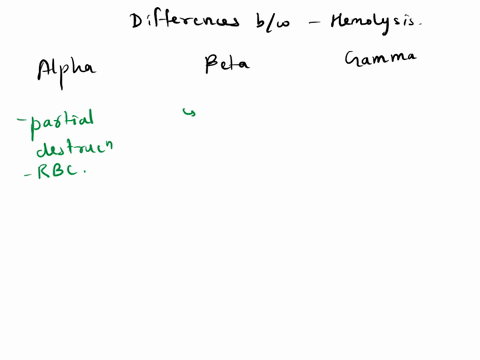 Differences b/w - Hemolysis.
Alpha Beta Gamma
- partial
destrucⁿ
- RBC.